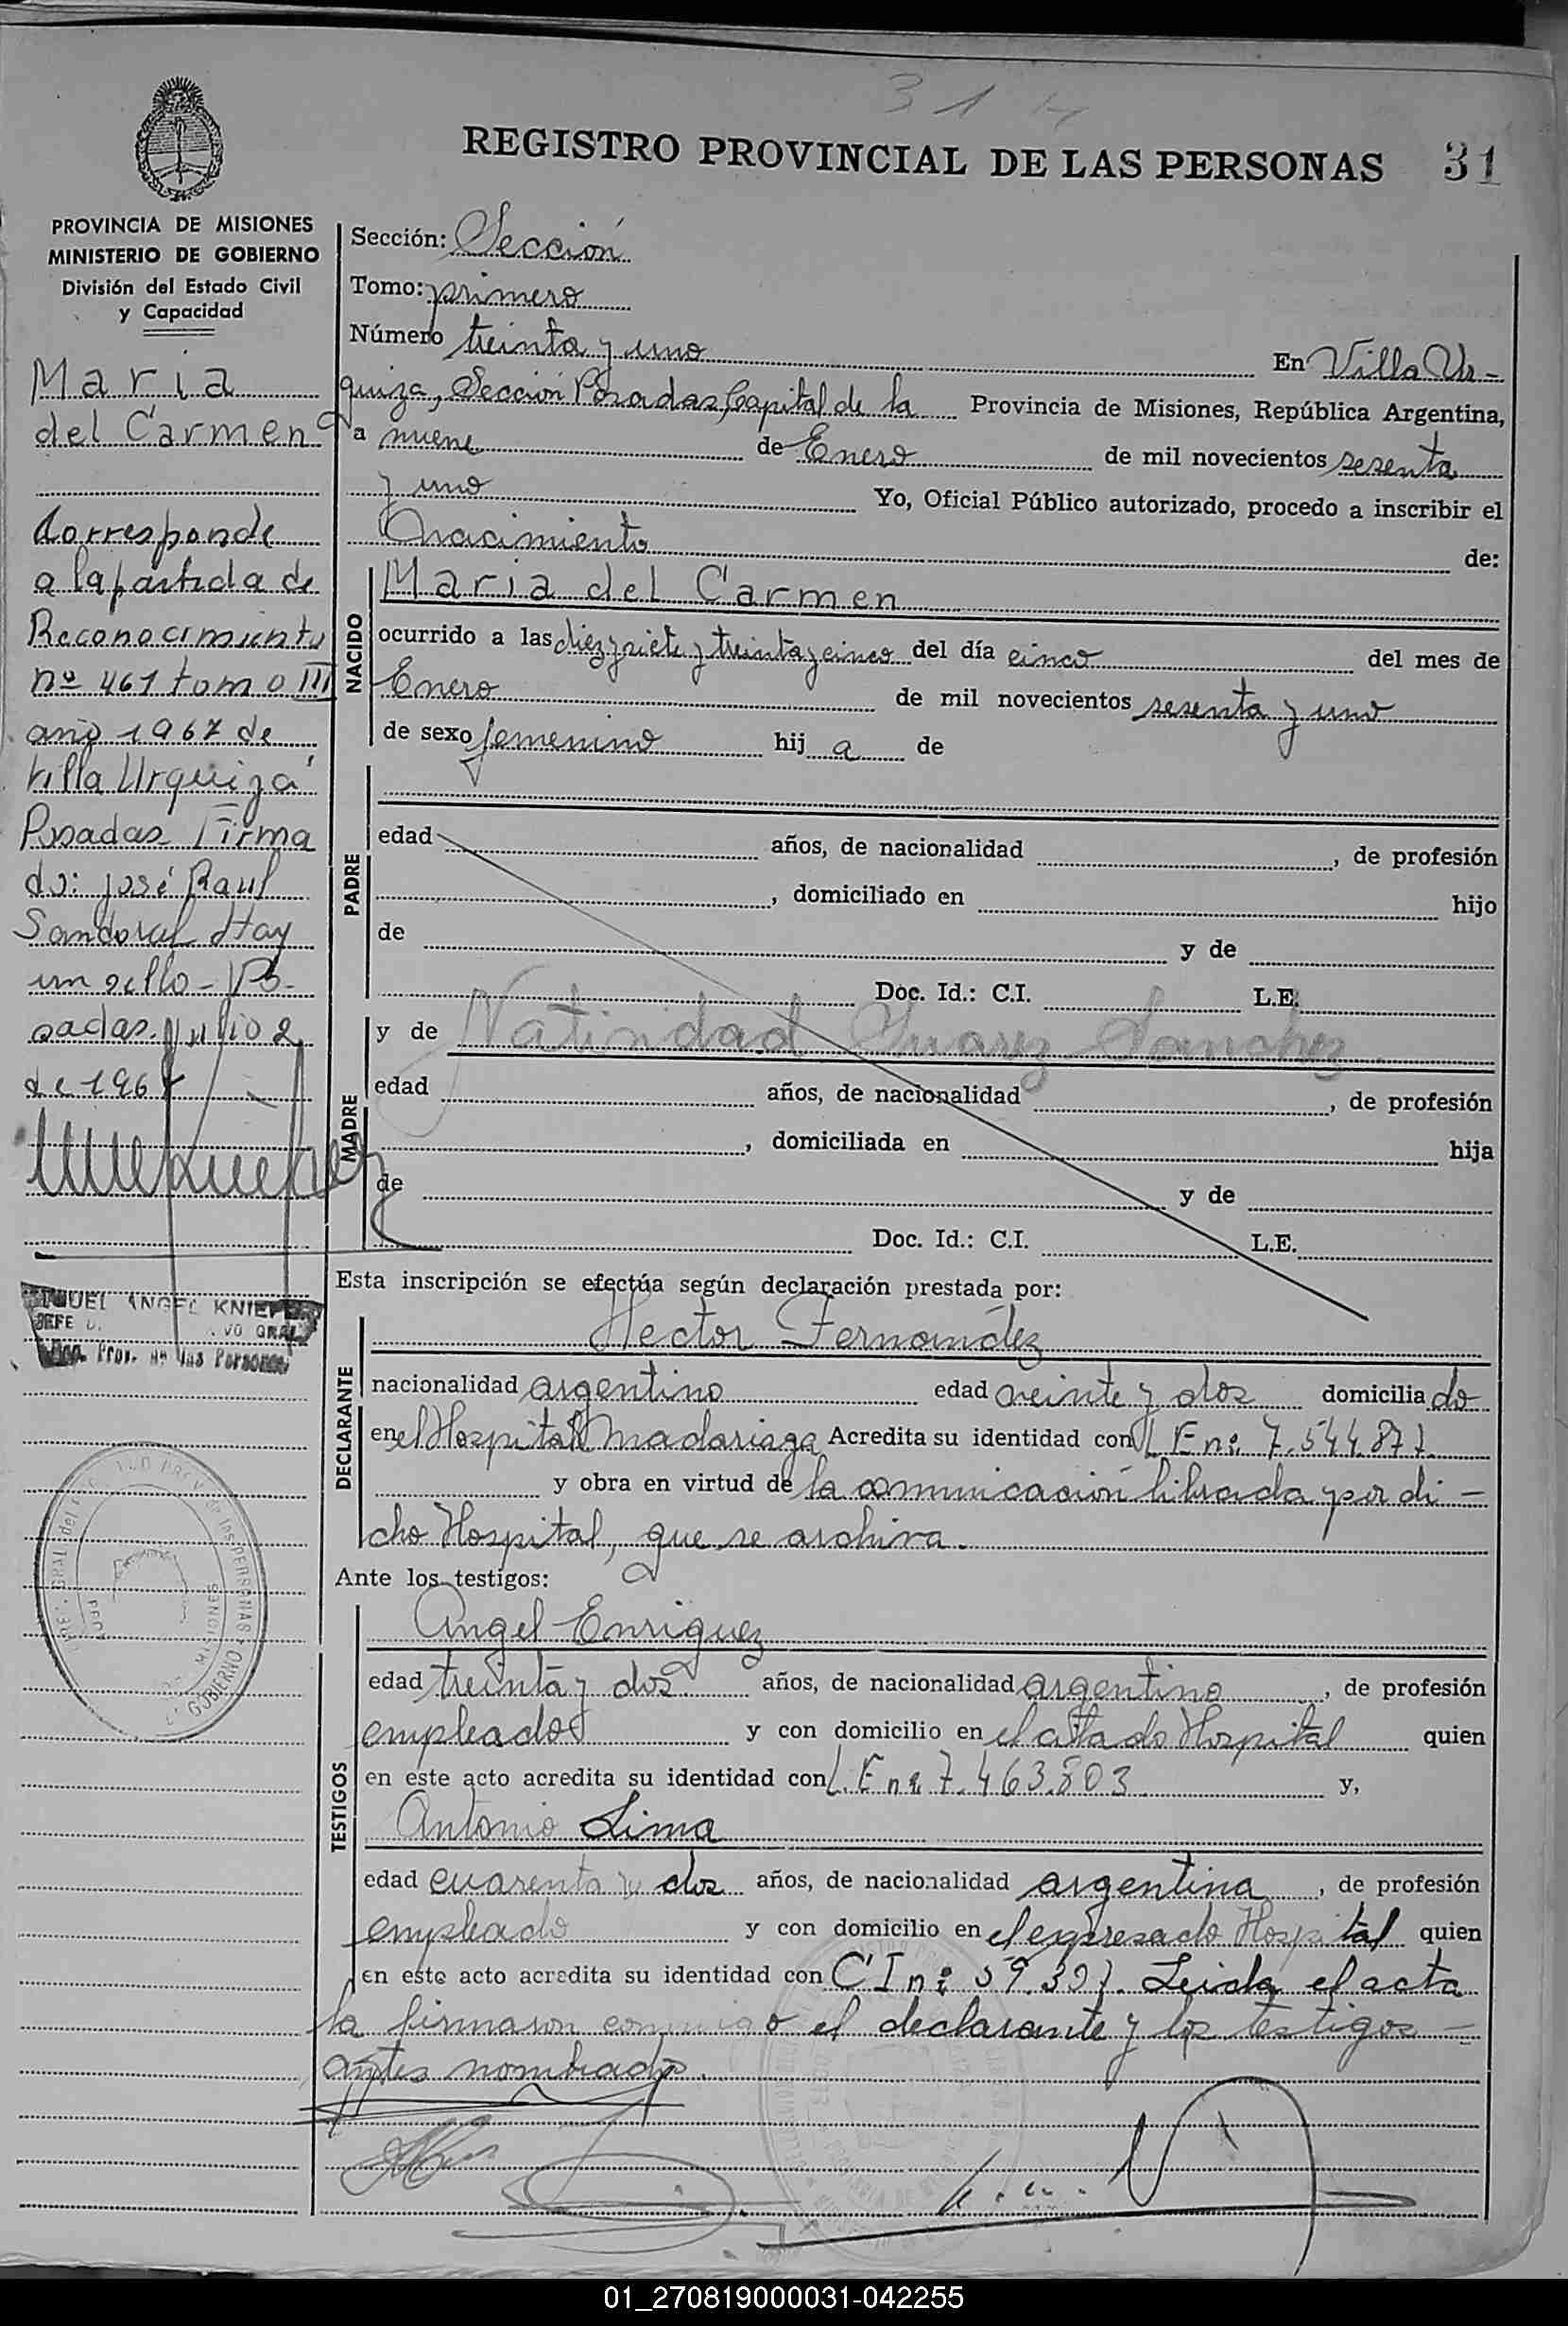 31
REGISTRO PROVINCIAL DE LAS PERSONAS 31
PROVINCIA DE MISIONES
MINISTERIO DE GOBIERNO
División del Estado Civil
y Capacidad
Maria
del Carmen
Corresponde
a la partida de
Reconocimiento
nº 461 tomo III
año 1967 de
Villa Urquiza
Posadas Firma
do: José Raul
Sandoval Hay
un sello - Po-
sadas. Julio 2
de 1967
ANGEL KNIE
JEFE
Prov. de las Personas
Sección: Sección
Tomo: primero
Número treinta y uno En Villa Ur-
quiza, Sección Posadas, Capital de la Provincia de Misiones, República Argentina,
a nueve de Enero de mil novecientos sesenta
y uno Yo, Oficial Público autorizado, procedo a inscribir el
nacimiento de:
NACIDO
Maria del Carmen
ocurrido a las diez y siete y treinta y cinco del día cinco del mes de
Enero de mil novecientos sesenta y uno
de sexo femenino hij a de
PADRE
edad años, de nacionalidad , de profesión
, domiciliado en hijo
de y de
Doc. Id.: C.I. L.E.
MADRE
y de Natividad Suarez Sanchez
edad años, de nacionalidad , de profesión
, domiciliada en hija
de y de
Doc. Id.: C.I. L.E.
Esta inscripción se efectúa según declaración prestada por:
DECLARANTE
Hector Fernandez
nacionalidad argentino edad veinte y dos domicilia do
en el Hospital Madariaga Acredita su identidad con L E nº 7.544.877
y obra en virtud de la comunicación librada por di-
cho Hospital, que se archiva.
Ante los testigos:
TESTIGOS
Angel Enriquez
edad treinta y dos años, de nacionalidad argentino , de profesión
empleado y con domicilio en el citado Hospital quien
en este acto acredita su identidad con L.E nº 7.463.803 y,
Antonio Lima
edad cuarenta y dos años, de nacionalidad argentina , de profesión
empleado y con domicilio en el expresado Hospital quien
en este acto acredita su identidad con C I nº 59.397. Leida el acta
la firmaron conmigo el declarante y los testigos -
antes nombrados.
01_270819000031-042255